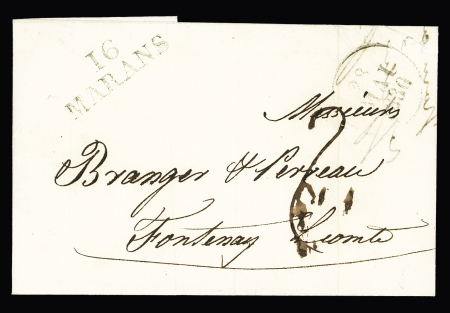 16
MARANS
Messieurs
Branger & Perreau
Fontenay Lecomte